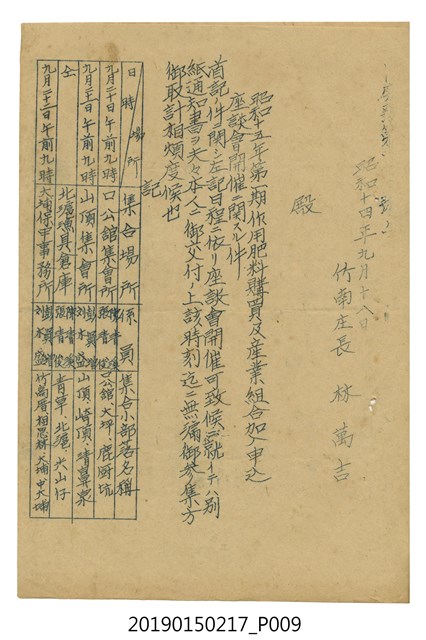 昭和十四年九月十八日
竹南庄長 林萬吉
殿
昭和十五年第一期作用肥料購買及産業組合加入申込
座談會開催ニ関スル件
首記ノ件関シ左記日程ニ依リ座談會開催可致候ニ就イテハ別
紙通知書ヲ夫々本人ニ御交付ノ上該時刻迄ニ無漏御参集方
御取計相煩度候也
記
日時 場所 集合場所 係員 集合小部落名稱
九月二十日午前九時 口公館集會所 張青俊 口公館、大坪、鹿廚坑
九月二十一日午前九時 山頂集會所 山頂、崎頂、靖鼻泉
仝 北埔漁具倉庫 張青俊 青草、北埔、尖山仔
九月二十二日午前九時 大埔保甲事務所 刘木盛 竹高厝、相思林、大埔、中大埔
20190150217_P009